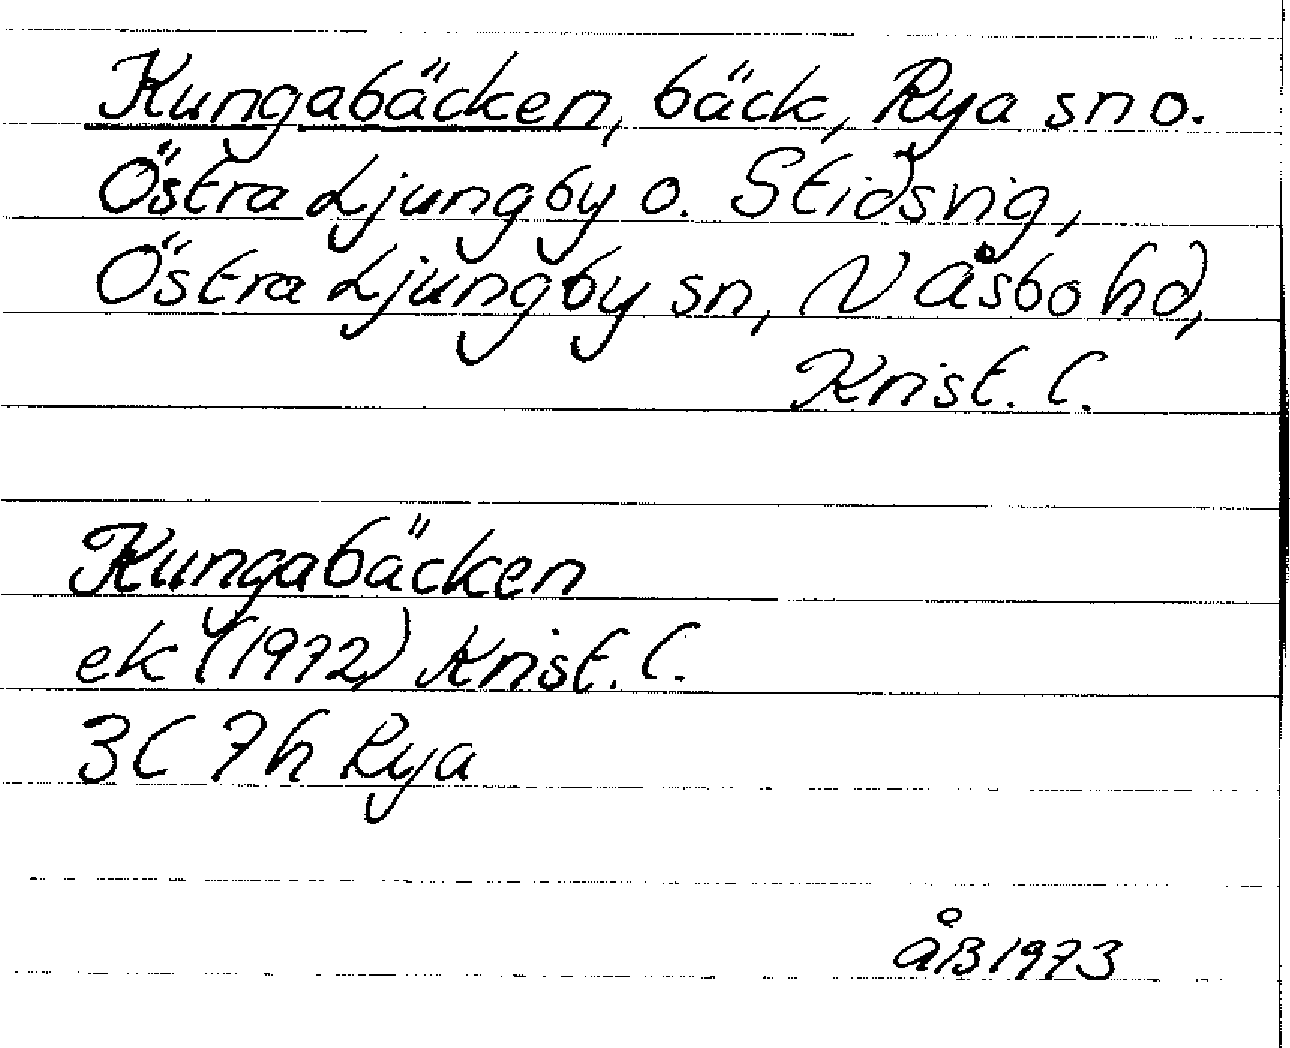 Kungabäcken, bäck, Rya sn o.
Östra Ljungby o. Stidsvig,
Östra Ljungby sn, N Åsbo hd,
Krist. l.
Kungabäcken
ek (1972) Krist. l.
3C 7h Rya
ÅB 1973